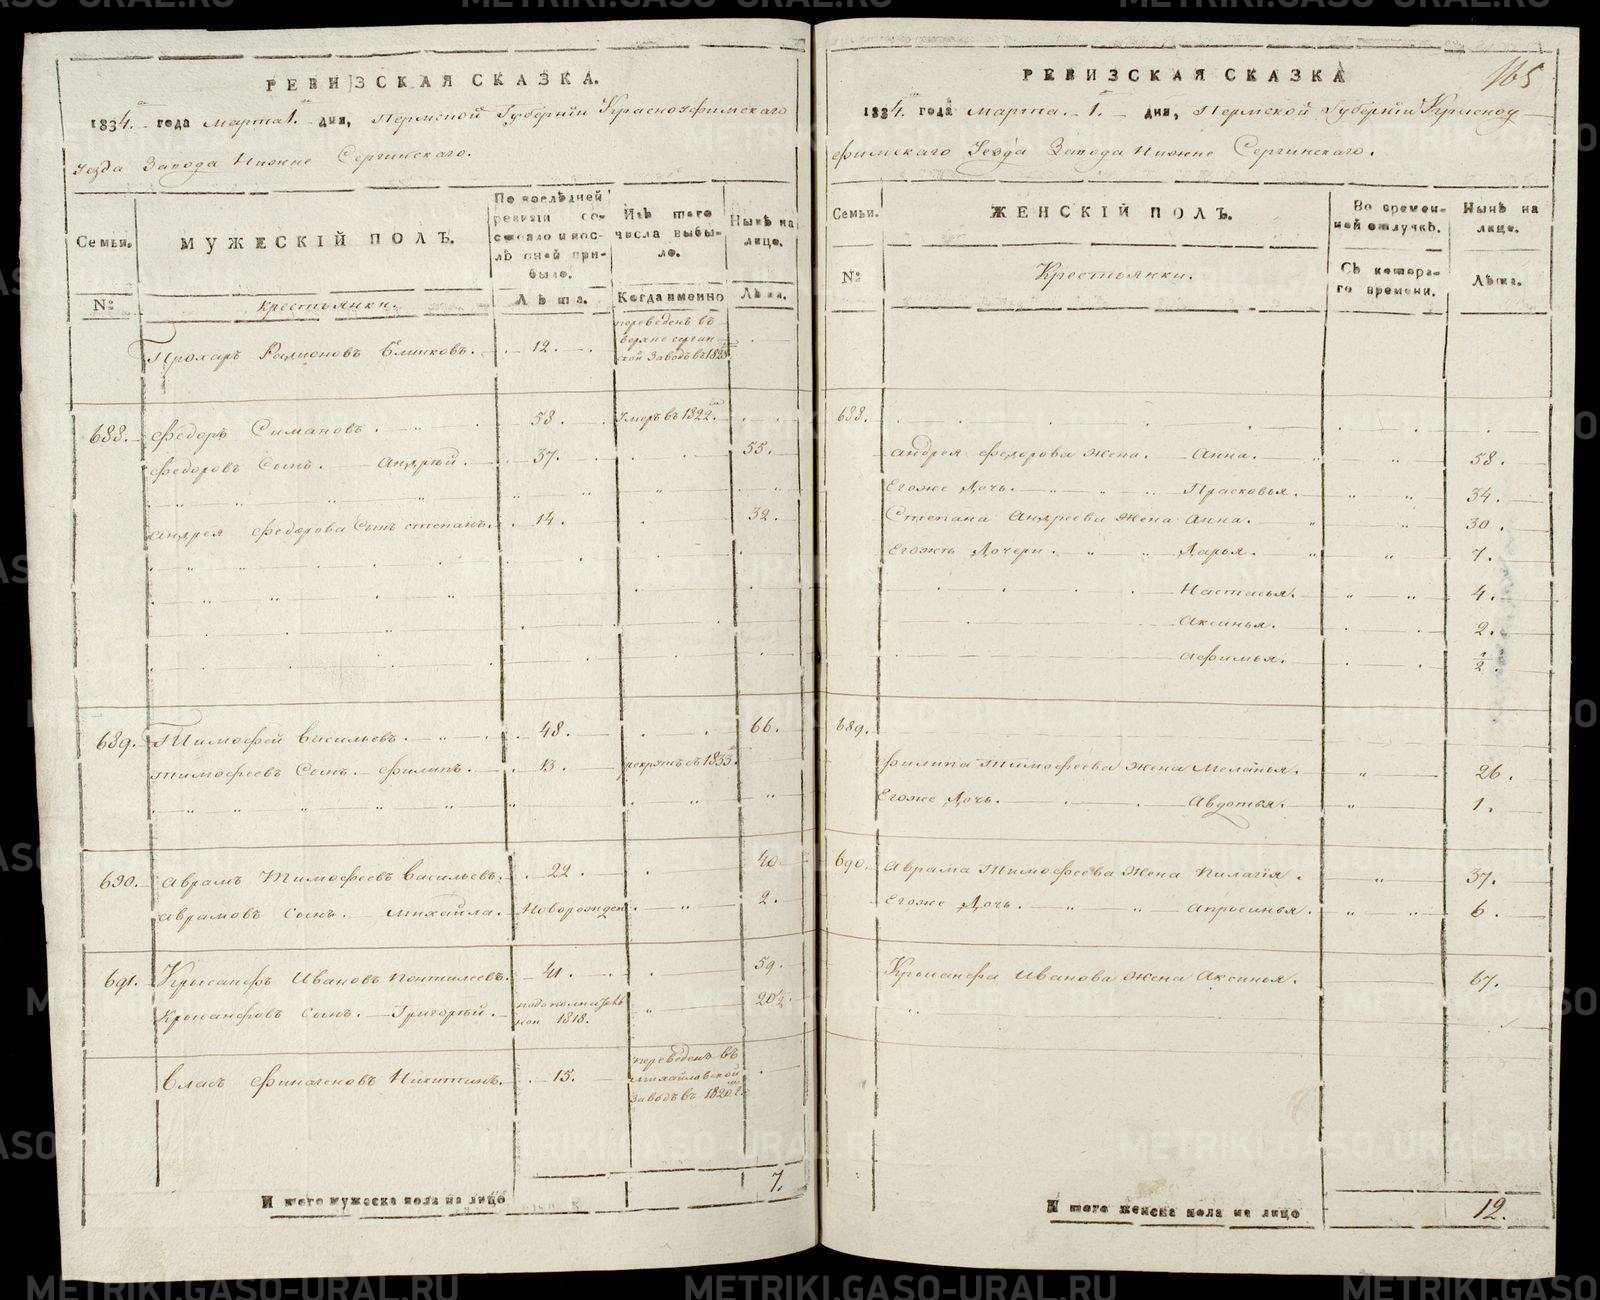 РЕВИЗСКАЯ СКАЗКА.
1834.го года марта 1.го дня, Пермской Губернiи Красноуфимскаго
Уезда Завода Нижне Сергинскаго.
Семьи.
№
МУЖЕСКIЙ ПОЛЪ.
Крестьянки.
По послѣдней ревизiи состояло и послѣ оной прибыло.
Лѣта.
Изъ того числа выбыло.
Когда именно
Нынѣ на лице.
Лѣта.
Прохаръ Родионовъ Блиновъ. 12. переведенъ въ верхне сергинской Заводъ въ 1828
688. Федоръ Симановъ. 58. Умеръ въ 1822.
Федоровъ Сынъ. Андрей. 37. 55.
Андрея Федорова Сынъ степанъ. 14. 32.
689. Тимофей васильевъ. 48. 66.
Тимофеевъ Сынъ. Филипъ. 13. рекрутъ съ 1833.
690. Аврамъ Тимофеевъ васильевъ. 22. 40.
Аврамовъ сынъ. михайла. Новорожден 2.
691. Крысанфъ Ивановъ 41. 59.
Крысанфовъ сынъ. Григорьй. 1818. 20½.
Власъ Никитинъ. 15. переведенъ въ михайловской Заводъ въ 1820
И того мужеска пола на лицо 7.
165
РЕВИЗСКАЯ СКАЗКА
1834. года марта 1. дня, Пермской Губернiи Красноу
фимскаго Уезда Завода Нижне Сергинскаго.
Семьи.
№
ЖЕНСКIЙ ПОЛЪ.
Крестьянки.
Во временной отлучкѣ.
Съ котораго времени.
Нынѣ на лице.
Лѣта.
688.
Андрея Федорова жена. Анна. 58.
Егоже Дочь. Прасковья. 34.
Степана Андреева жена Анна. 30.
Егожъ Дочери. Дарья. 7.
Настасья. 4.
Аксинья. 2.
Афимья. ½.
689.
Филипа Тимофеева жена Меланья. 26.
Егоже Дочь. Авдотья. 1.
690. Аврама Тимофеева жена Пилагiя. 37.
Егоже Дочь. Апросинья. 6.
Крысанфа Иванова жена Аксинья. 67.
И того женска пола на лицо 12.
METRIKI.GASO-URAL.RU